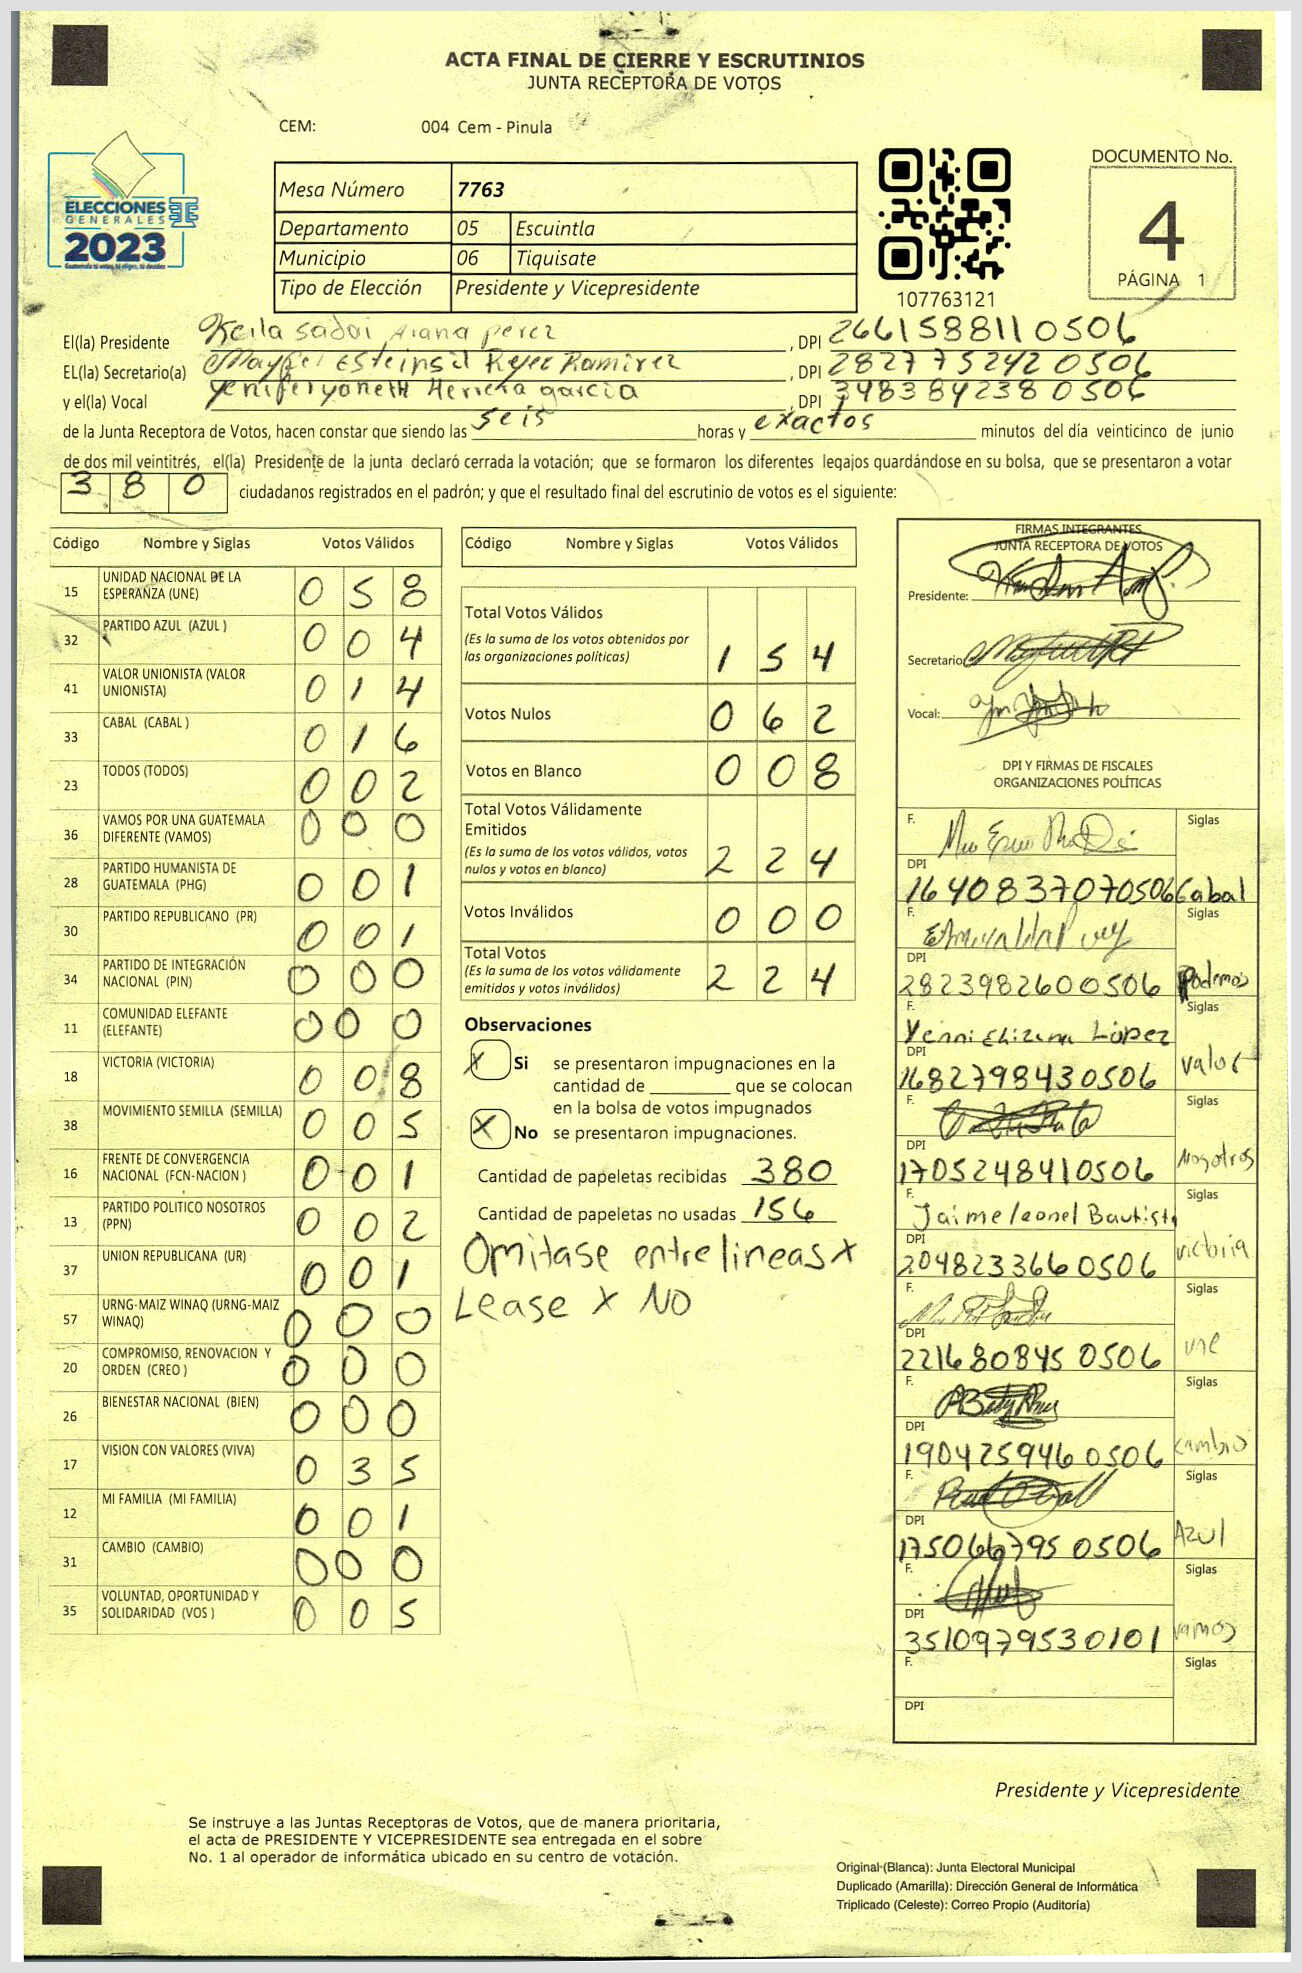 ACTA FINAL DE CIERRE Y ESCRUTINIOS
JUNTA RECEPTORA DE VOTOS
CEM: 004 Cem - Pinula
ELECCIONES
GENERALES
2023
Mesa Número 7763
Departamento 05 Escuintla
Municipio 06 Tiquisate
Tipo de Elección Presidente y Vicepresidente
107763121
DOCUMENTO No.
4
PÁGINA 1
El(la) Presidente Keila Sadai Arana perez, DPI 2661588110506
EL(la) Secretario(a) Reyes Ramirez, DPI 2827752420506
y el(la) Vocal Yeniferyoneth Herrera garcia, DPI 3483842380506
de la Junta Receptora de Votos, hacen constar que siendo las seis horas y exactos minutos del día veinticinco de junio
de dos mil veintitrés, el(la) Presidente de la junta declaró cerrada la votación; que se formaron los diferentes legajos guardándose en su bolsa, que se presentaron a votar
380 ciudadanos registrados en el padrón; y que el resultado final del escrutinio de votos es el siguiente:
Código Nombre y Siglas Votos Válidos
15 UNIDAD NACIONAL DE LA ESPERANZA (UNE) 058
32 PARTIDO AZUL (AZUL ) 004
41 VALOR UNIONISTA (VALOR UNIONISTA) 014
33 CABAL (CABAL ) 016
23 TODOS (TODOS) 002
36 VAMOS POR UNA GUATEMALA DIFERENTE (VAMOS) 000
28 PARTIDO HUMANISTA DE GUATEMALA (PHG) 001
30 PARTIDO REPUBLICANO (PR) 001
34 PARTIDO DE INTEGRACIÓN NACIONAL (PIN) 000
11 COMUNIDAD ELEFANTE (ELEFANTE) 000
18 VICTORIA (VICTORIA) 008
38 MOVIMIENTO SEMILLA (SEMILLA) 005
16 FRENTE DE CONVERGENCIA NACIONAL (FCN-NACION ) 001
13 PARTIDO POLITICO NOSOTROS (PPN) 002
37 UNION REPUBLICANA (UR) 001
57 URNG-MAIZ WINAQ (URNG-MAIZ WINAQ) 000
20 COMPROMISO, RENOVACION Y ORDEN (CREO ) 000
26 BIENESTAR NACIONAL (BIEN) 000
17 VISION CON VALORES (VIVA) 035
12 MI FAMILIA (MI FAMILIA) 001
31 CAMBIO (CAMBIO) 000
35 VOLUNTAD, OPORTUNIDAD Y SOLIDARIDAD (VOS ) 005
Código Nombre y Siglas Votos Válidos
Total Votos Válidos
(Es la suma de los votos obtenidos por las organizaciones politicas) 154
Votos Nulos 062
Votos en Blanco 008
Total Votos Válidamente Emitidos
(Es la suma de los votos válidos, votos nulos y votos en blanco) 224
Votos Inválidos 000
Total Votos
(Es la suma de los votos válidamente emitidos y votos inválidos) 224
Observaciones
X Si se presentaron impugnaciones en la
cantidad de ________ que se colocan
en la bolsa de votos impugnados
X No se presentaron impugnaciones.
Cantidad de papeletas recibidas 380
Cantidad de papeletas no usadas 156
Omitase entre lineas x
Lease x NO
FIRMAS INTEGRANTES
JUNTA RECEPTORA DE VOTOS
Presidente:
Secretario:
Vocal:
DPI Y FIRMAS DE FISCALES
ORGANIZACIONES POLÍTICAS
F. Siglas
DPI
1640837070506 Cabal
F. Siglas
DPI
2823982600506 Podemos
F. Siglas
Yenni Elizena López
DPI
1682798430506 valor
F. Siglas
DPI
1705248410506 Nosotros
F. Siglas
Jaime leonel Bautista
DPI
2048233660506 victoria
F. Siglas
DPI
2216808450506 une
F. Siglas
DPI
1904259460506 cambio
F. Siglas
DPI
1750667950506 Azul
F. Siglas
DPI
3510979530101 vamos
F. Siglas
DPI
Presidente y Vicepresidente
Se instruye a las Juntas Receptoras de Votos, que de manera prioritaria,
el acta de PRESIDENTE Y VICEPRESIDENTE sea entregada en el sobre
No. 1 al operador de informática ubicado en su centro de votación.
Original (Blanca): Junta Electoral Municipal
Duplicado (Amarilla): Dirección General de Informática
Triplicado (Celeste): Correo Propio (Auditoría)